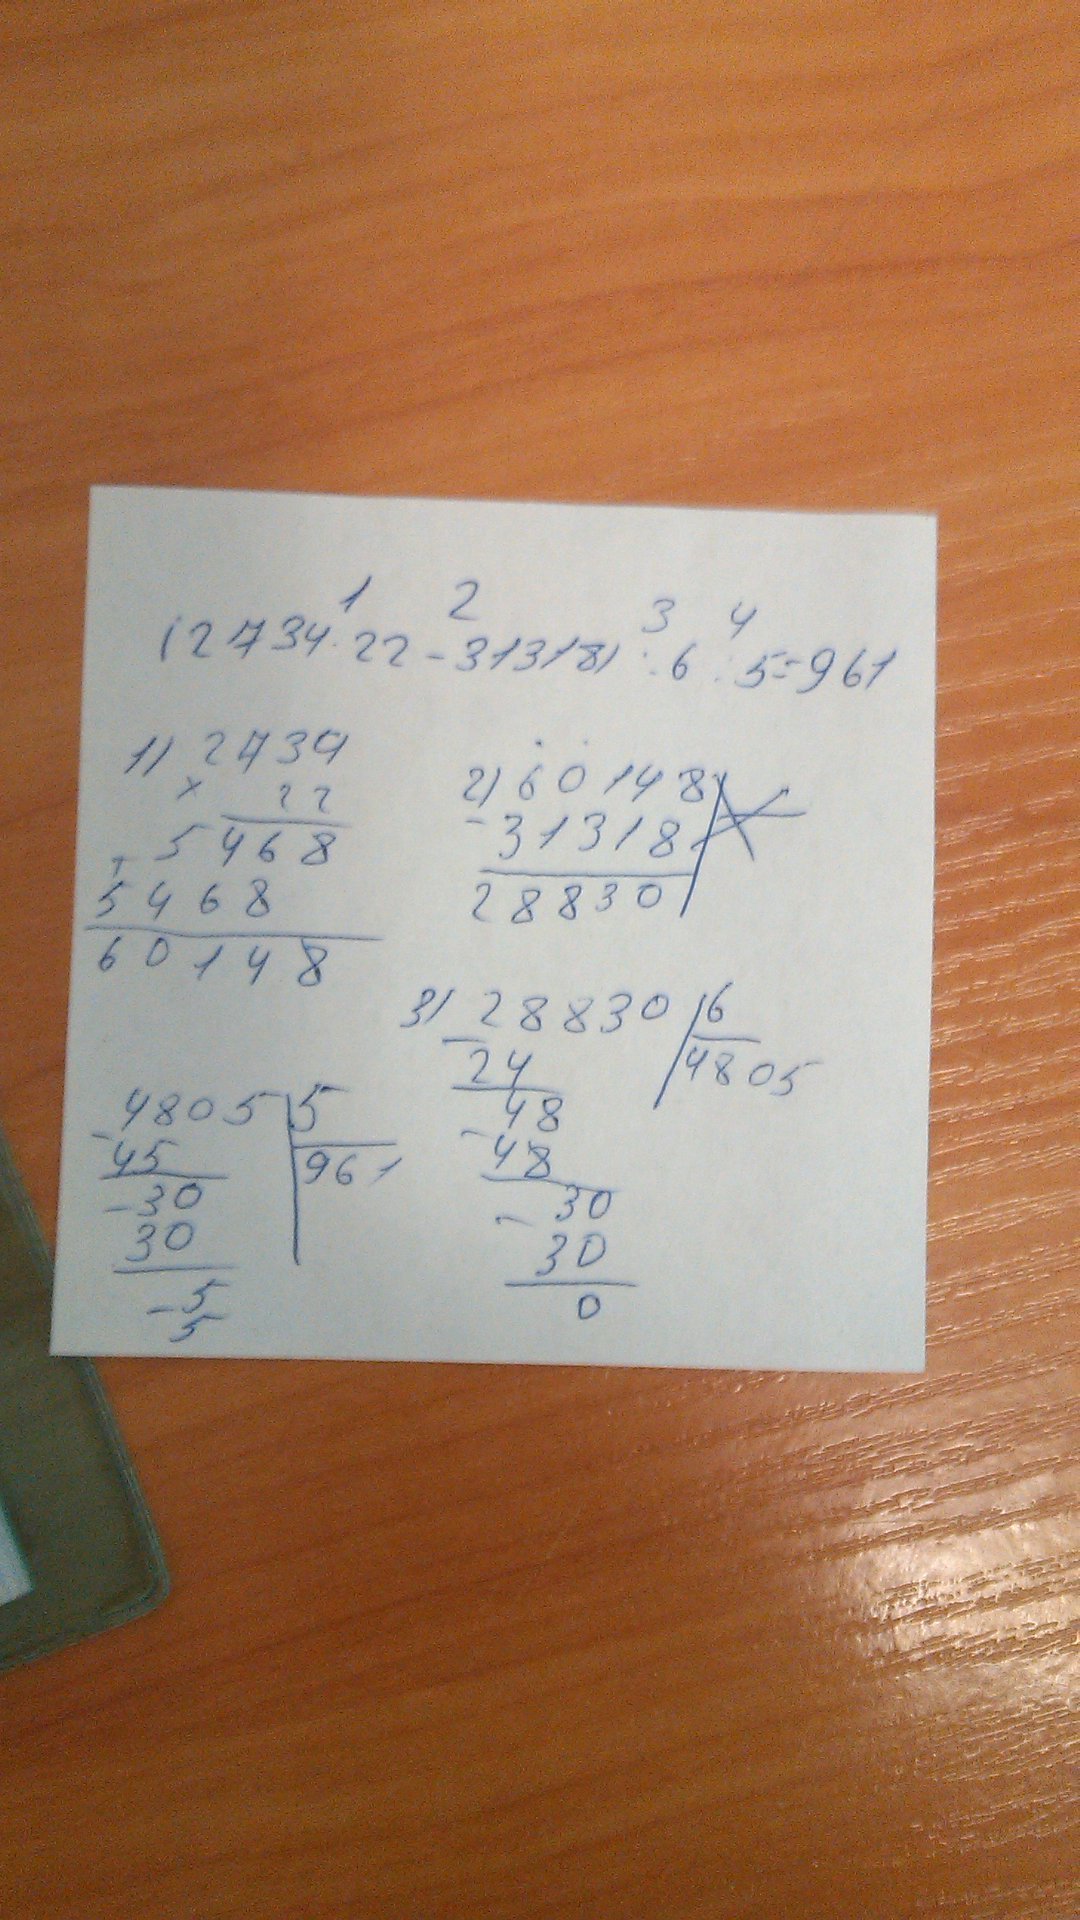 1 2 3 4
(2734·22-31318):6:5=961
1) 2734
× 22
5468
+
5468
60148
2) 60148
- 31318
28830
3) 28830 6
- 24 4805
48
- 48
30
- 30
0
4805 5
- 45 961
- 30
30
- 5
5